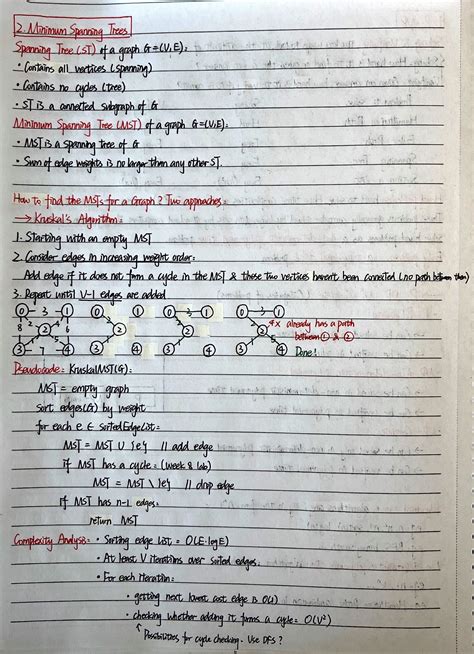 2. Minimum Spanning Trees
Spanning Tree (ST) of a graph G=(V,E):
• Contains all vertices (spanning)
• Contains no cycles (tree)
• ST is a connected subgraph of G
Minimum Spanning Tree (MST) of a graph G=(V,E):
• MST is a spanning tree of G
• Sum of edge weights is no larger than any other ST.
How to find the MSTs for a Graph? Two approaches:
→ Kruskal's Algorithm:
1. Starting with an empty MST
2. Consider edges in increasing weight order:
Add edge if it does not form a cycle in the MST & these two vertices haven't been connected (no path between them)
3. Repeat until V-1 edges are added
0 3 1 0 1 0 1 0 3 1 0 1
8 2 2 6 2 2 2 2 4x already has a path
between 1 & 2
3 7 4 3 4 3 4 3 4 3 4 Done!
Pseudocode: KruskalMST(G):
MST = empty graph
sort edges(G) by weight
for each e ∈ sortedEdgeList:
MST = MST ∪ {e} // add edge
if MST has a cycle: (week 8 lab)
MST = MST \ {e} // drop edge
if MST has n-1 edges:
return MST
Complexity Analysis: • Sorting edge list = O(E·logE)
• At least V iterations over sorted edges.
• For each iteration:
• getting next lowest cost edge is O(1)
• checking whether adding it forms a cycle: O(V²)
↑ Possibilities for cycle checking. Use DFS?